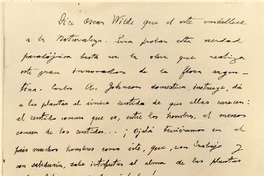 Dice Oscar Wilde que el arte embellece
a la Naturaleza. Para probar esta verdad
paradójica basta ver la obra que realiza
este gran innovador de la flora argen-
tina. Carlos R. Johnson domestica, instruye, dá
a las plantas el único sentido de que ellas carecen:
el sentido común que es, entre los hombres, el menos
común de los sentidos... ¡Ojalá tuviéramos en el
país muchos hombres como éste, que, con trabajo y
con sabiduría, sabe interpretar el alma de las plantas